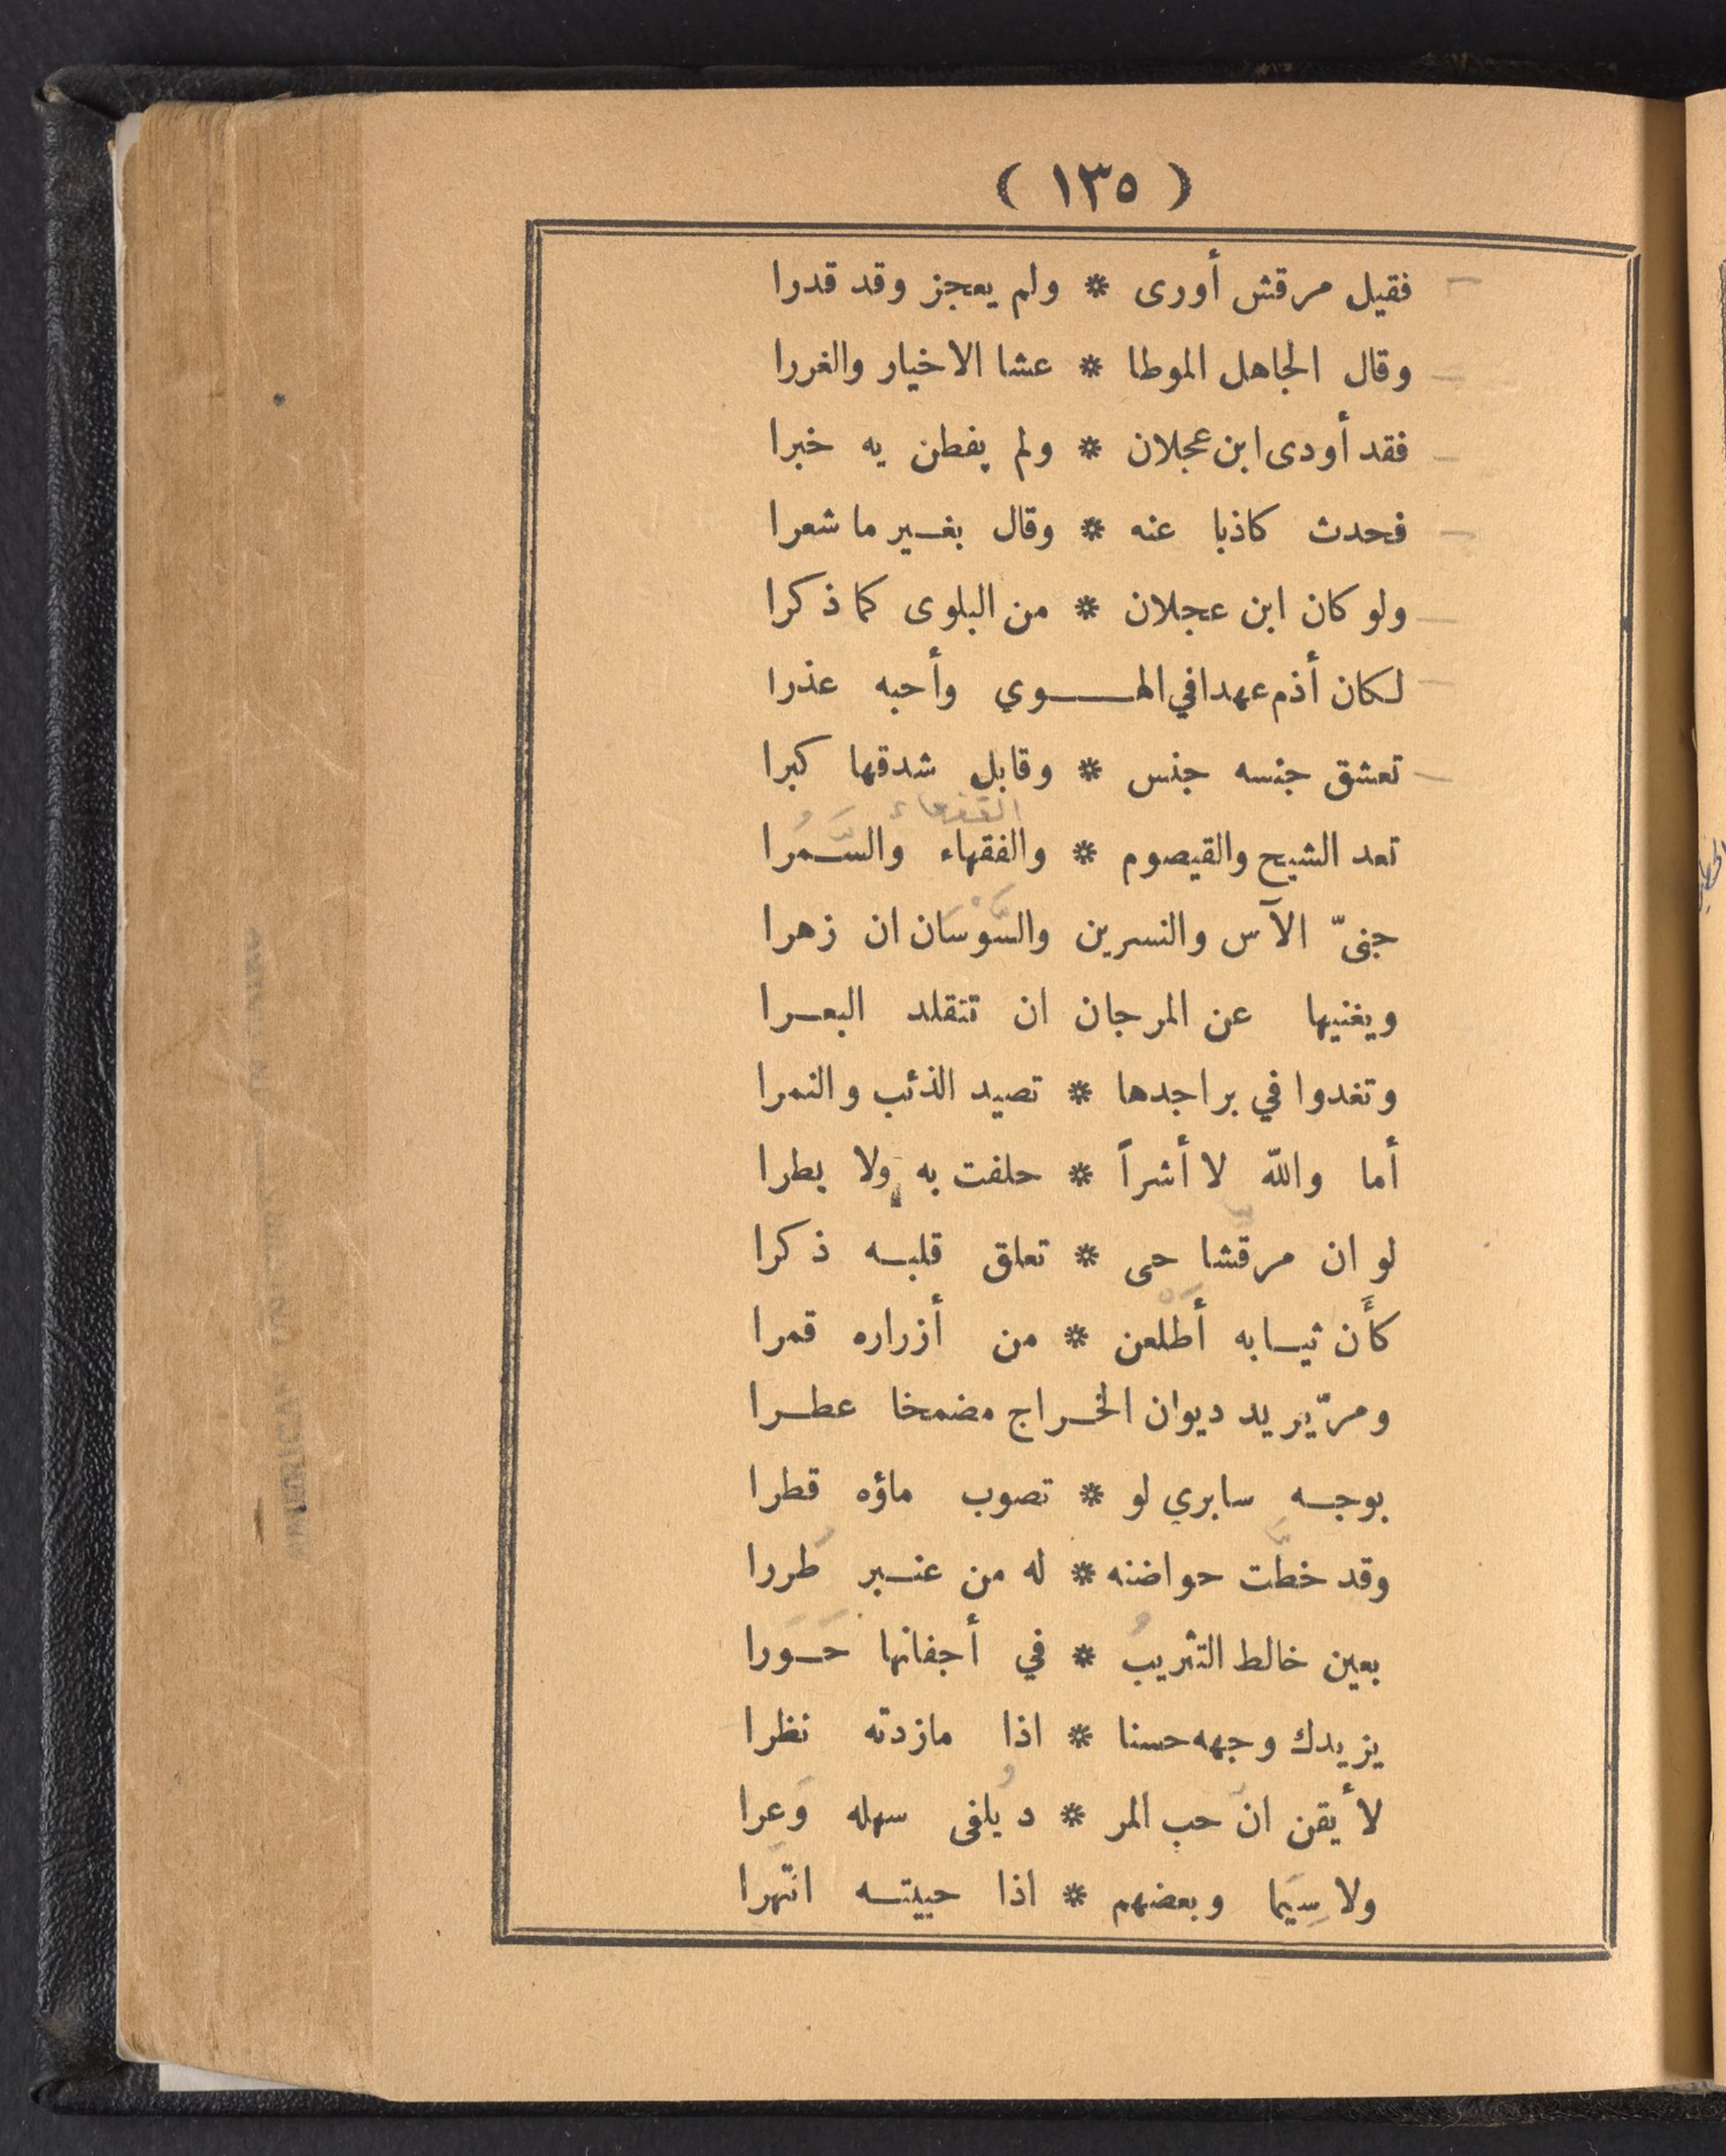 ( ١٣٥ )
فقيل مرقش أورى * ولم يعجز وقد قدرا
وقال الجاهل الموطا * عشا الاخيار والغررا
فقد أودى ابن عجلان * ولم يفطن يه خبرا
فحدث كاذبا عنه * وقال بغير ما شعرا
ولو كان ابن عجلان * من البلوى كما ذكرا
لكان أذم عهدا في الهوي وأحبه عذرا
تعشق جنسه جنس * وقابل شدقها كبرا
القفعاء
تعد الشيح والقيصوم * والفقهاء والسَّمُرا
جنىّ الآس والنسرين والسَّوْسَان ان زهرا
ويغنيها عن المرجان ان تتقلد البعرا
وتغدوا في براجدها * تصيد الذئب والنمرا
أما والله لا أشراً * حلفت به ولا بطرا
لو ان مرقّشا حى * تعلق قلبه ذكرا
كأَن ثيابه أَطْلعن * من أزراره قمرا
ومرّ يريد ديوان الخراج مضمخا عطرا
بوجه سابري لو * تصوب ماؤه قطرا
وقد خطَّت حواضنه * له من عنبر طُررا
بعين خالط التثريبُ * في أجفانها حَوَرا
يزيدك وجهه حسنا * اذا مازدته نظرا
لأيقن انَّ حب المر * د يُلفى سهله وَعرا
ولا سِيَما وبعضهم * اذا حييته انتَهرا